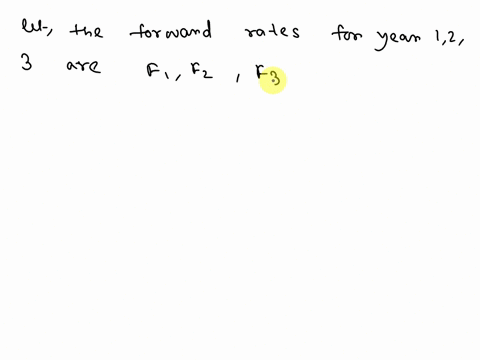 let, the forward rates for year 1,2,
3 are F₁, F₂ , F₃